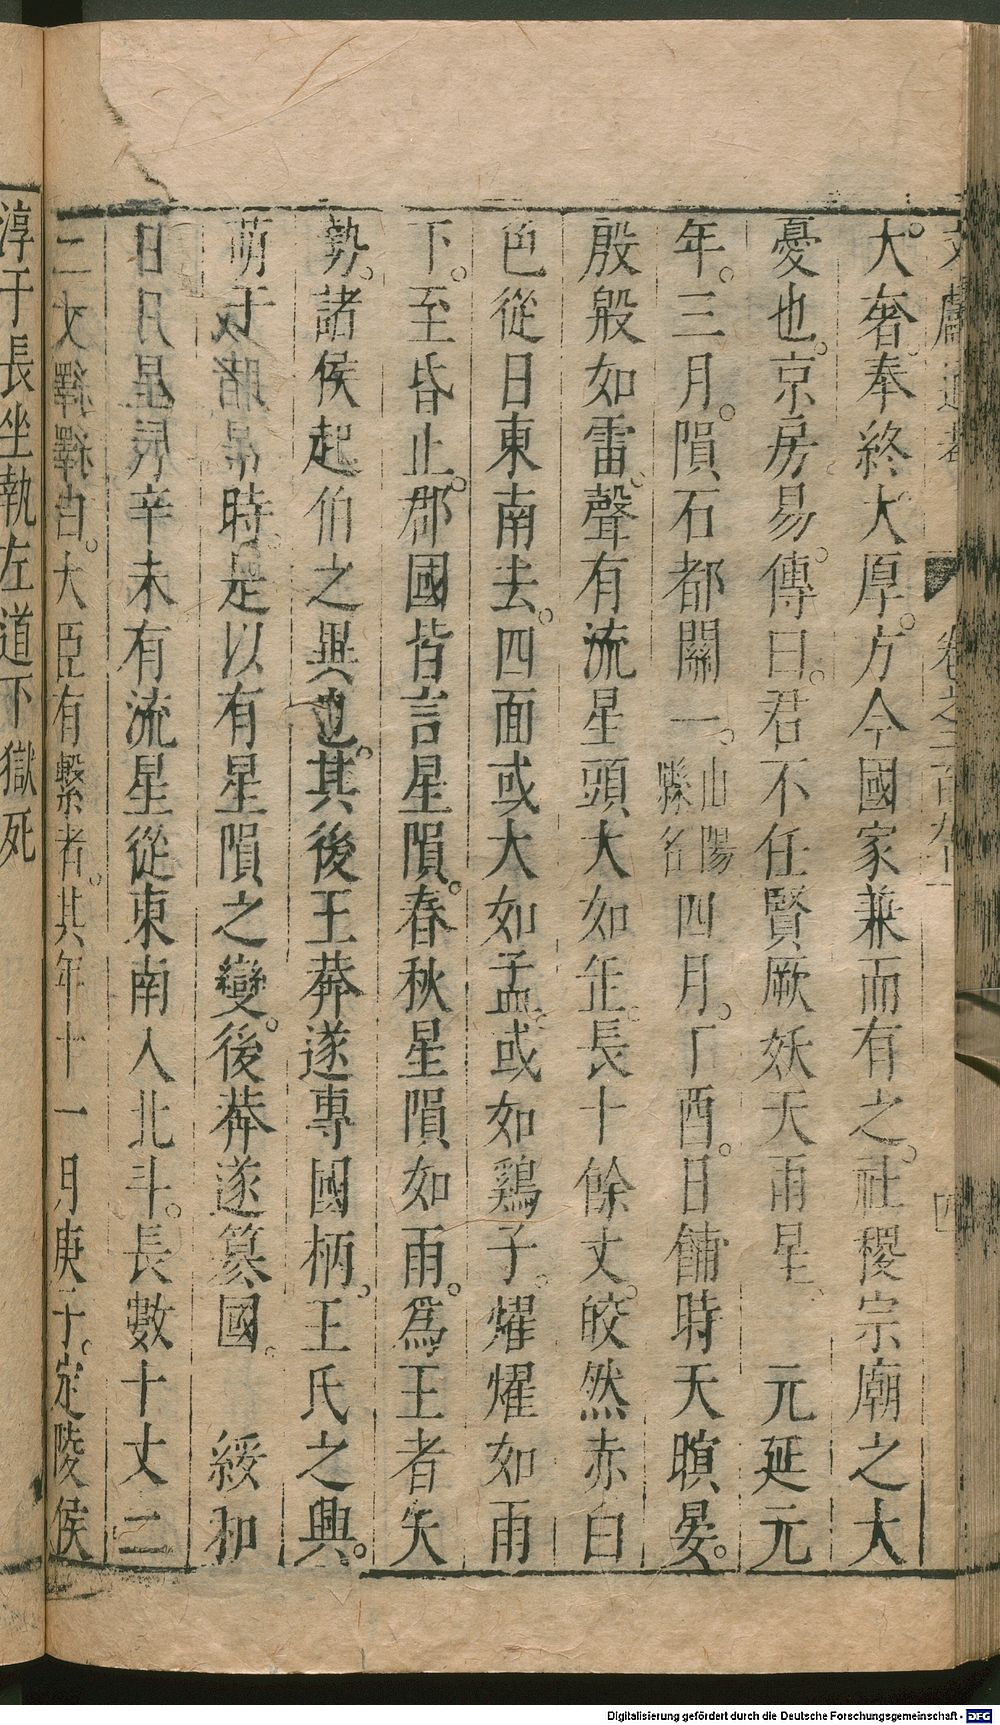 大奢。奉終大厚。方今國家兼而有之。社稷宗廟之大
憂也。京房易傳曰。君不任賢厥妖天雨星　元延元
年。三月。隕石都關一。山陽縣名四月。丁酉。日餔時天暝晏。
殷殷如雷。聲有流星頭大如缶。長十餘丈。皎然赤白
色從日東南去。四面或大如盂。或如鷄子。燿燿如雨
下。至昏止。郡國皆言星隕。春秋星隕如雨。爲王者失
勢。諸侯起伯之異也。其後王莽遂專國柄。王氏之興。
萌于　時。是以有星隕之變。後莽遂簒國。　綏和
日月星辰辛未有流星從東南入北斗。長數十丈二
二　繹繹　。大臣有繫者。其年十一月庚子。定陵侯
淳于長坐執左道下獄死
卷之二百九十一
四
Digitalisierung gefördert durch die Deutsche Forschungsgemeinschaft - DFG